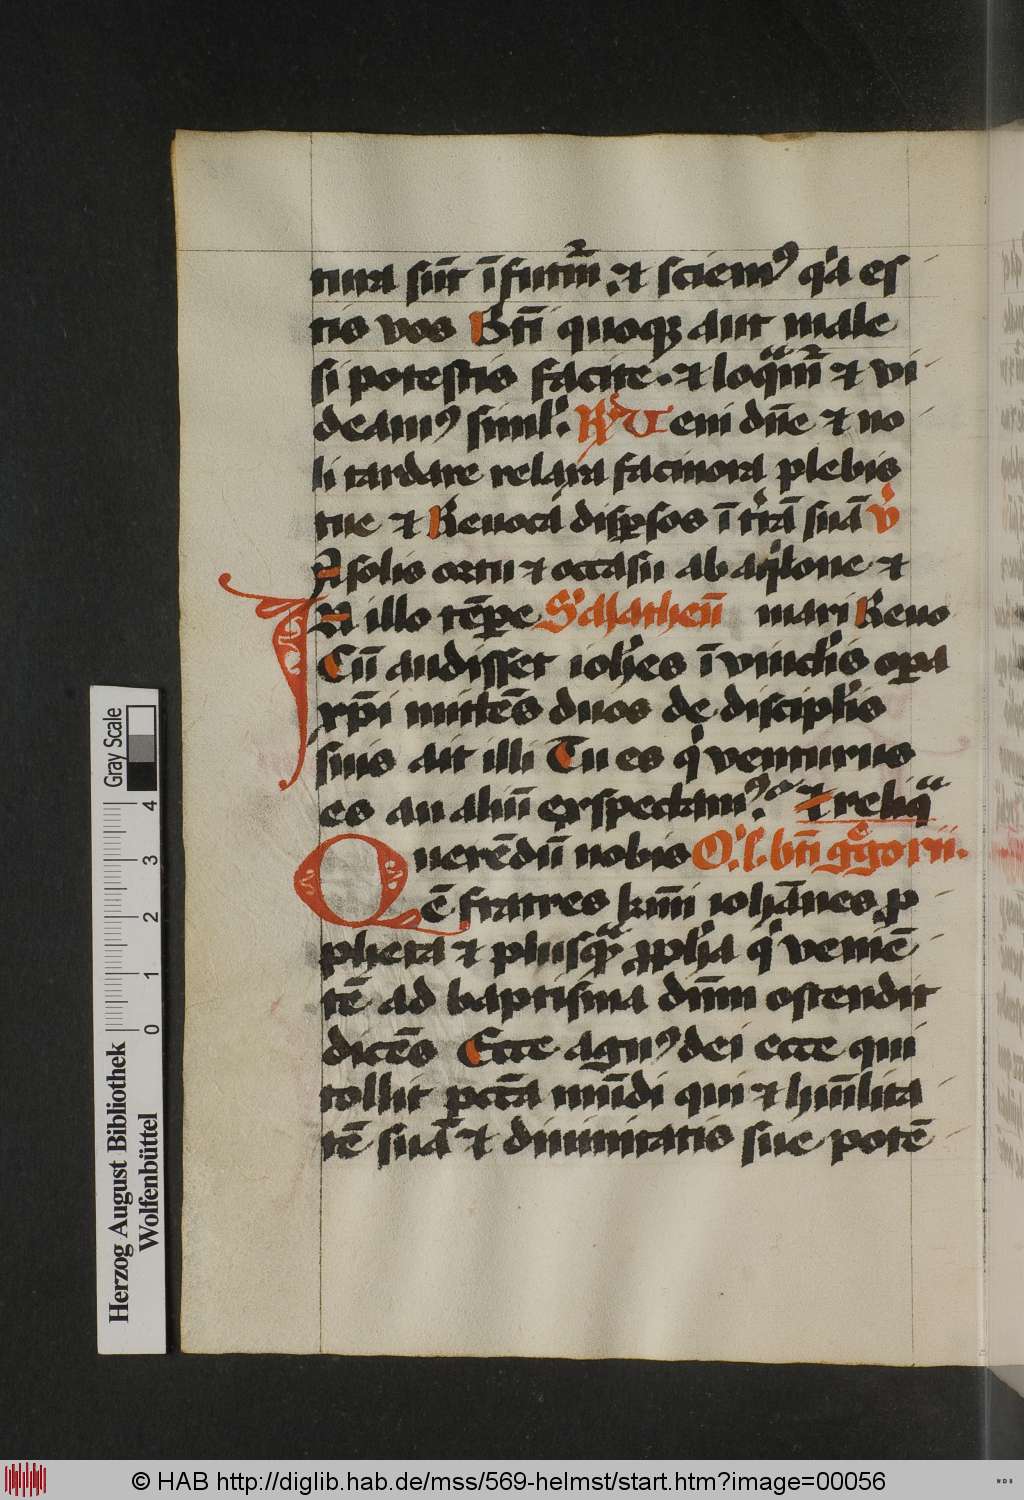 tura sūt ī futuꝝ̄ ⁊ sciemꝰ q̇a es
tis vos Btī quoqꝫ aut male
si potestis facite. ⁊ loqᵃmᷣ ⁊ vi
deamꝰ simlʼ. Rʼ Veni dn̄e ⁊ no
li tardare relaxa facinora plebis
tue ⁊ Reuoca disꝑsos ī t̕rā suā v̕
A solis ortu ⁊ occasu ab aq̇lone ⁊
In illo tēꝑe S' Matheū mari Reuo
Cū audisset ioh̕es ī vincl̕is oꝑa
xp̄i mittēs duos de discipl̕is
suis ait illi Tu es q̇ venturus
es an aliū exspectamꝰ. ⁊ reliqᵃ
Querēdū nobis O'. l. btī gᵉgorii.
ē fratres kmī iohānes ꝓ
pheta ⁊ plusqᵃ ꝓph̕a q̇ veniē
tē ad baptisma dn̄m ostendit
dicēs Ecce agnꝰ dei ecce qui
tollit pccā mūdi qui ⁊ hūilita
tē suā ⁊ diuinitatis sue potē
Herzog August Bibliothek
Wolfenbüttel
0 1 2 3 4
Gray Scale
© HAB http://diglib.hab.de/mss/569-helmst/start.htm?image=00056